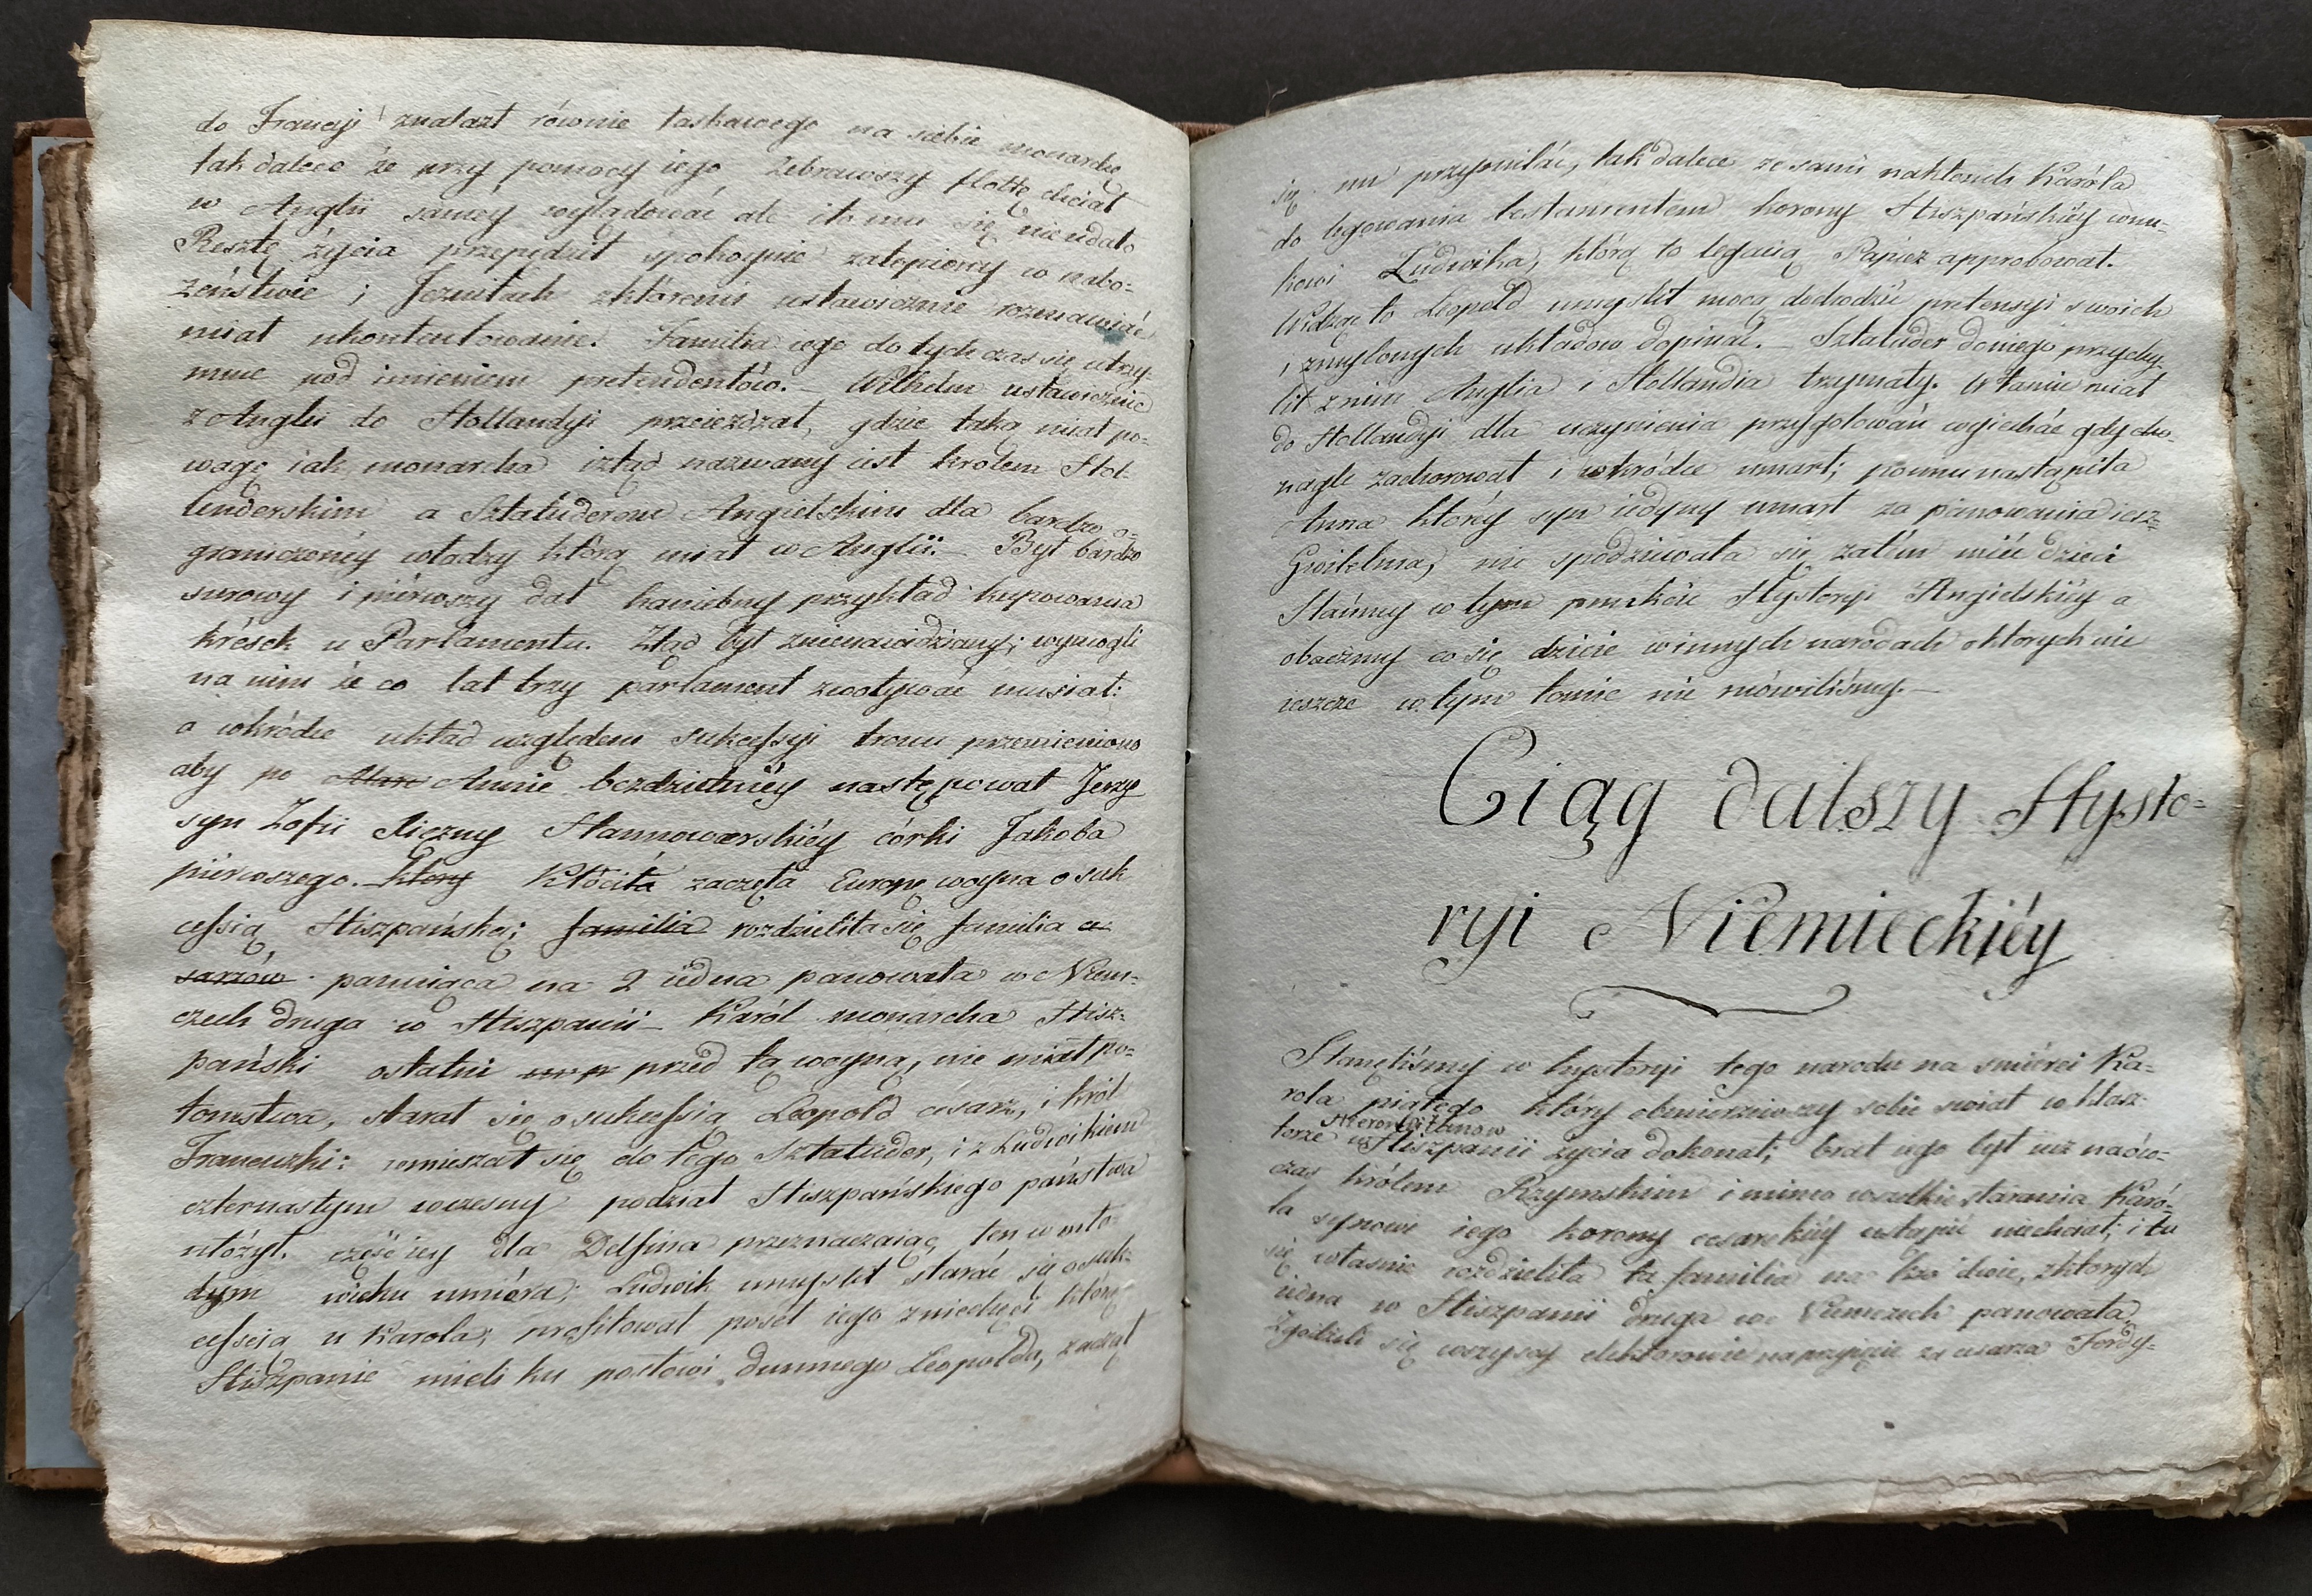 do Francyi znalazł równie łaskawego na siebie monarchę
tak dalece że przy pomocy iego zebrawszy flottę chciał
w Anglii samey wylądować ale i to mu się nie udało
Resztę życia przepędził spokoynie zatopiony w nabo=
żeństwie i Jezuitach z któremi ustawicznie rozmawiać
miał ukontentowanie. Familia iego dotychczas się utrzy-
muie pod imieniem pretendentów. – Wilhelm ustawicznie
z Anglii do Hollandyi przeieżdżał, gdzie taką miał po=
wagę iak monarcha i ztąd nazwany iest krolem Hol-
lenderskim a Sztatuderem Angielskim dla bardzo o=
graniczonéy władzy którą miał w Anglii. – Był bardzo
surowy i piérwszy dał haniebny przykład kupowania
krések u Parlamentu. Ztąd był znienawidziany; wymogli
na nim że co lat trzy parlament zwoływać musiał:
a wkródce układ względem sukcessyi tronu przemieniono
aby po Annie bezdzietnéy następował Jerzy
syn Zofii Xiężny Hannowerskiéy córki Jakoba
piérwszego. Który Kłóciła zaczęła Europę woyna o suk
cessią Hiszpańską; familia rozdzieliła się familia ce
sarzów panuiąca na 2 iedna panowała w Niem-
czech druga w Hiszpanii – Karól monarcha Hisz-
pański ostatni przed tą woyną, nie miał po=
tomstwa, starał się o sukcessią Leopold cesarz, i król
Francuzki: wmieszał się do tego Sztatuder, i z Ludwikiem
czternastym wczesny podział Hiszpańskiego państwa
ułóżył. część iey dla Delfina przeznaczaiąc, ten w mło-
dym wieku umiéra; Ludwik umyslił starać się o suk-
cessią u Karola; profitował poseł iego z niechęci którą
Hiszpanie mieli ku posłowi dumnego Leopolda, zaczął
się im przymilać, tak dalece ze sami nakłonili Karóla
do legowania testamentem korony Hiszpańskiéy wnu-
kowi Ludwika, którą to legacią Papiez approbował.
Widząc to Leopold umyslił mocą dochodzić pretensyi swoich
i zmylonych układow dopinać. – Sztatuder do niego przychy-
lił z nim Anglia i Hollandia trzymały. Właśnie miał
do Hollandyi dla uczynienia przygotowań wyiecháć gdy
nagle zachorował i wkródce umarł; po nim nastąpiła
Anna któréy syn iedyny umarł za panowania iesz=
Gwilelma, nie spodziewała się zatém mieć dzieci
Stańmy w tym punkcie Hystoryi Angielskiéy a
obaczmy co się dzieie w innych narodach o ktorych nie
ieszcze w tym tomie nie mówiliśmy. –
Ciąg dalszy Hysto=
ryi Niemieckiéy
Stanęliśmy w hystoryi tego narodu na smiérci Ka=
rola piątego który obmierziwszy sobie swiat w klasz-
Hieronimitanow
torze w Hiszpanii życia dokonał; brat iego był iuż naów-
czas królem Rzymskim i mimo wszelkie starania Karó-
la synowi iego korony cesarskiéy ustąpić niechciał; i tu
się własnie rozdzieliła ta familia na dwie, z których
iedna w Hiszpanii druga w Niemczech panowała.
Zgodzili się wszyscy elektorowie na przyięcie za cesarza Ferdy-